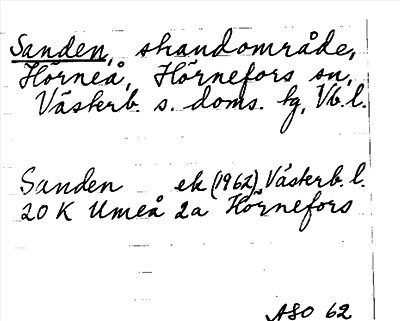 Sanden, strandområde,
Hörneå, Hörnefors sn,
Västerb. s. doms. tg, Vb. l.
Sanden ek (1962) Västerb. l.
20 K Umeå 2a Hörnefors
ASO 62